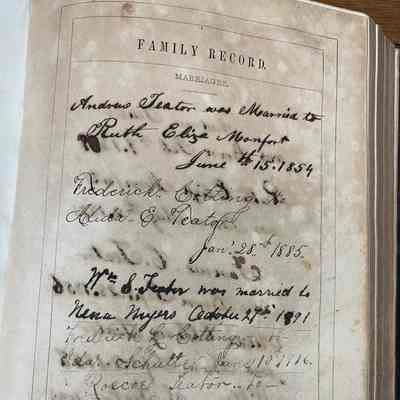 FAMILY RECORD.
MARRIAGES.
Andrew Teator was Married to
Ruth Eliza Monfort
June 15th 1854
Frederick
E. Teator.
Jan. 28th 1885.
Wm S. Teator was married to
Nena Myers October 27th 1891
Fredrick
Schultz Jan
Roscoe Teator to